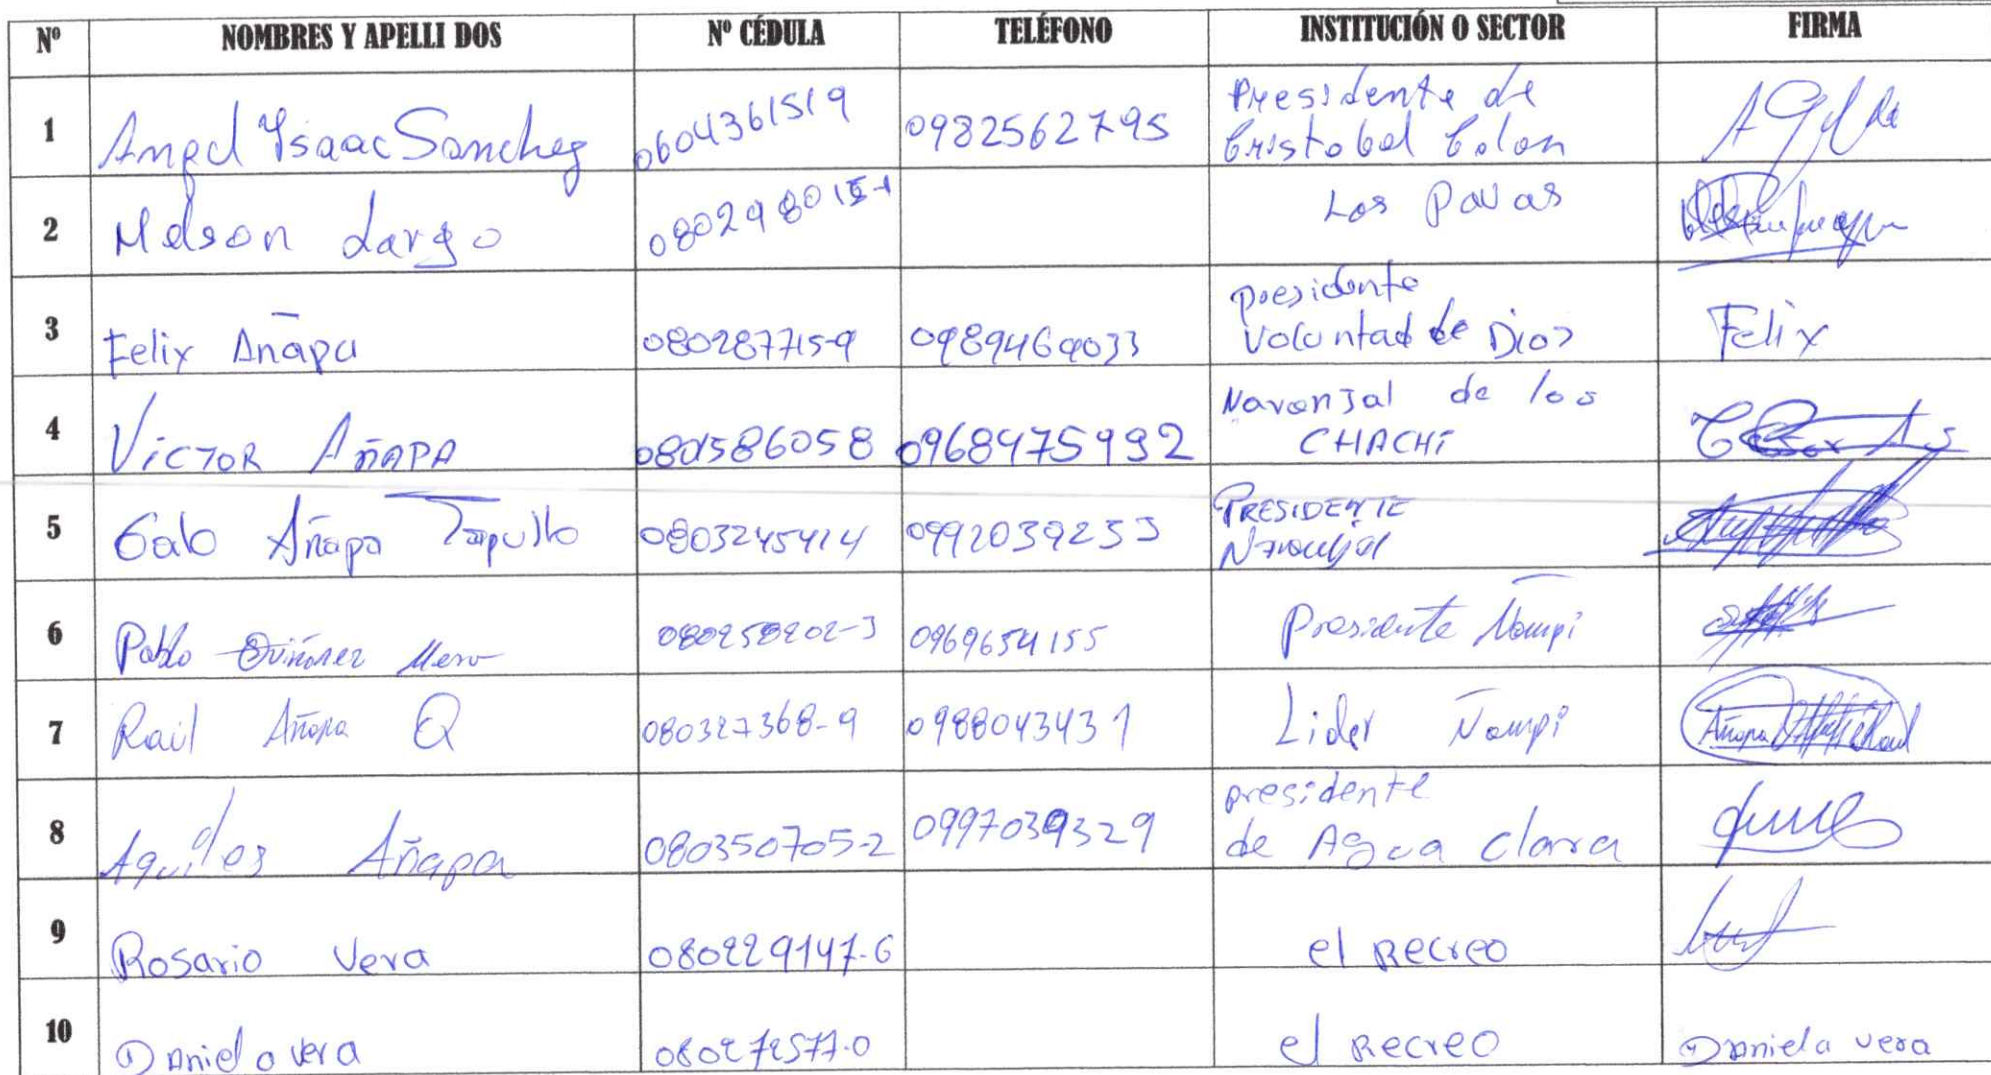 Nº NOMBRES Y APELLI DOS Nº CÉDULA TELÉFONO INSTITUCIÓN O SECTOR FIRMA
1 Angel Ysaac Sanchez 0604361519 0982562795 Presidente de
Cristobal Colon
2 Nelson Largo Los Pavas
3 Felix Añapa 080287715-9 0989469033 presidente
Voluntad de Dios Felix
4 VICTOR AÑAPA 0801586058 0968975992 Naranjal de los
CHACHI
5 Galo Añapa Tapullo 0803245414 0992039253 PRESIDENTE
Naranjal
6 Pablo Quiñonez Mero 080258202-3 0969654155 Presidente Ñampi
7 Raúl Añapa Q 080327368-9 098804343 1 Lider Ñampi Añapa
8 Aquiles Añapa 080350705-2 0997039329 presidente
de Agua clara
9 Rosario Vera 080229147-6 el Recreo
10 Daniela vera 080272577-0 el Recreo Daniela vera